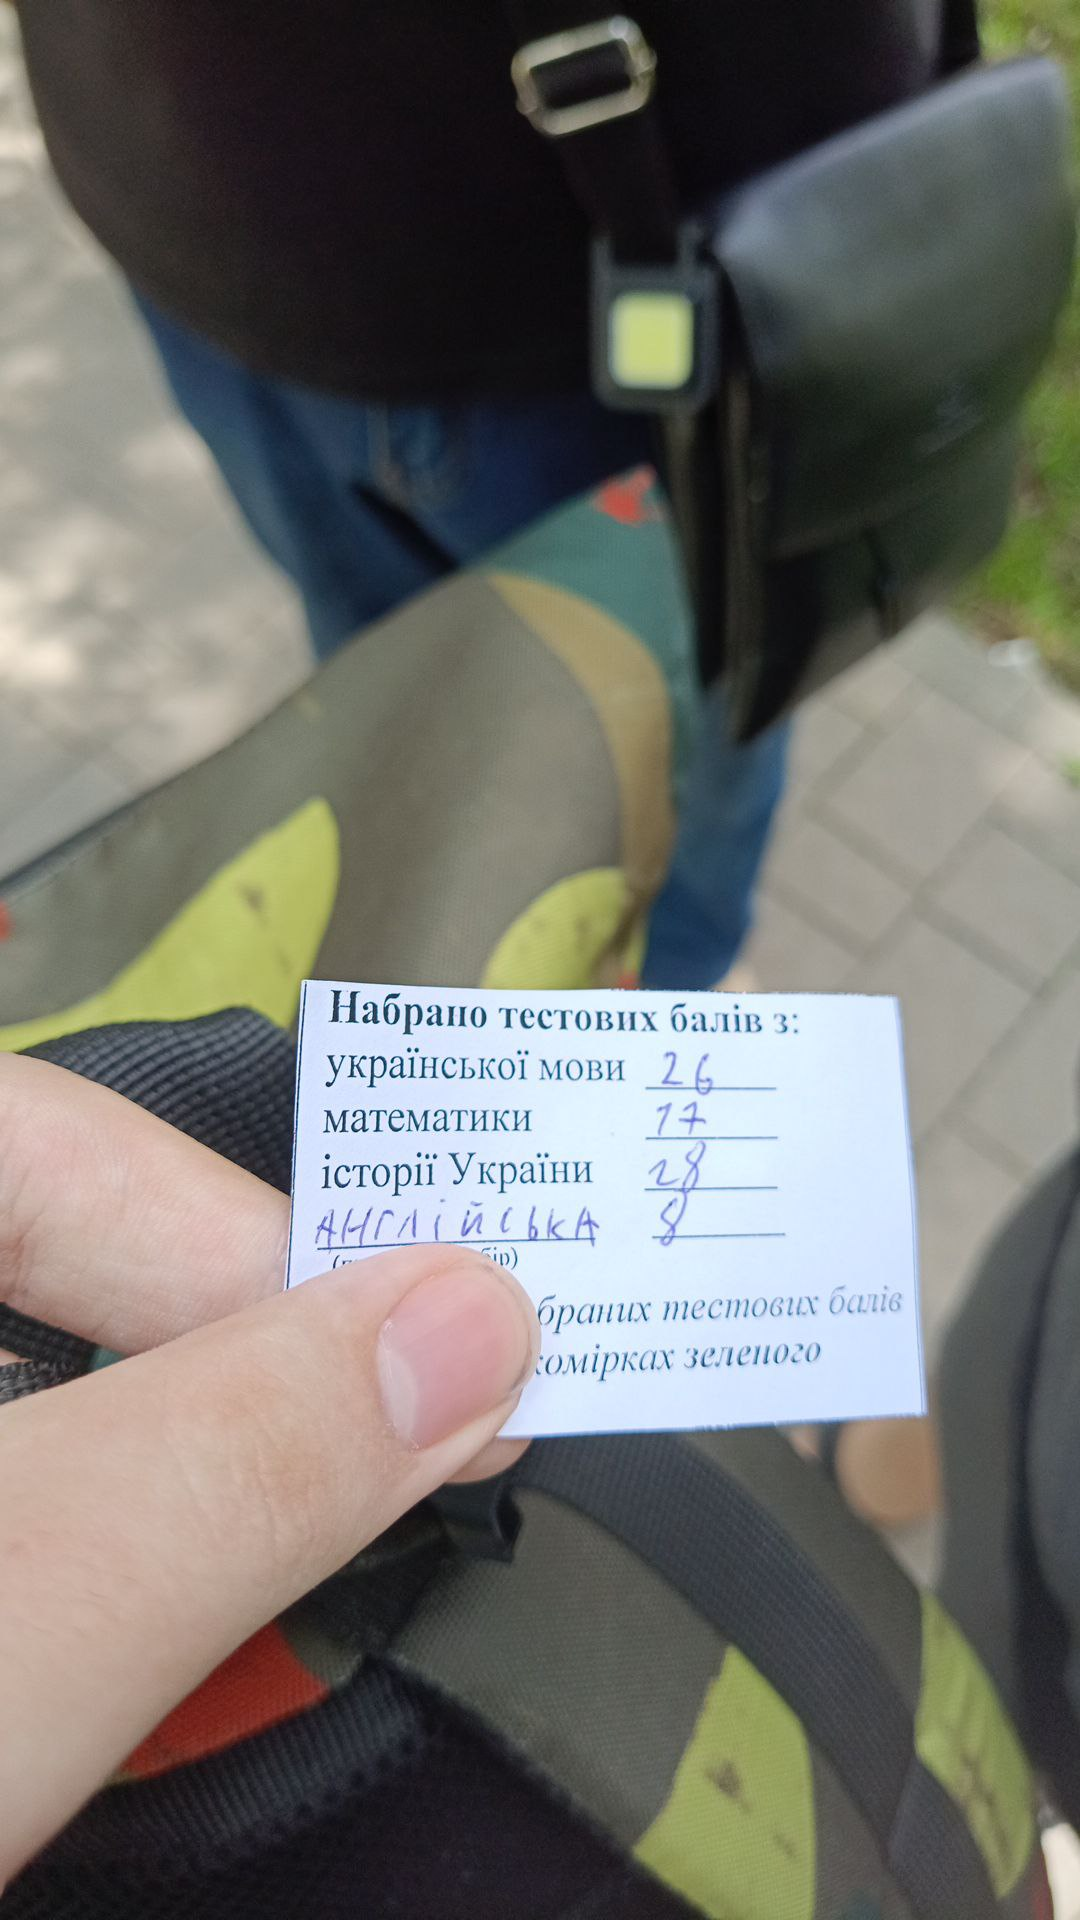 Набрано тестових балів з:
української мови 26
математики 17
історії України 28
АНГЛІЙСЬКА 8
браних тестових балів
комірках зеленого